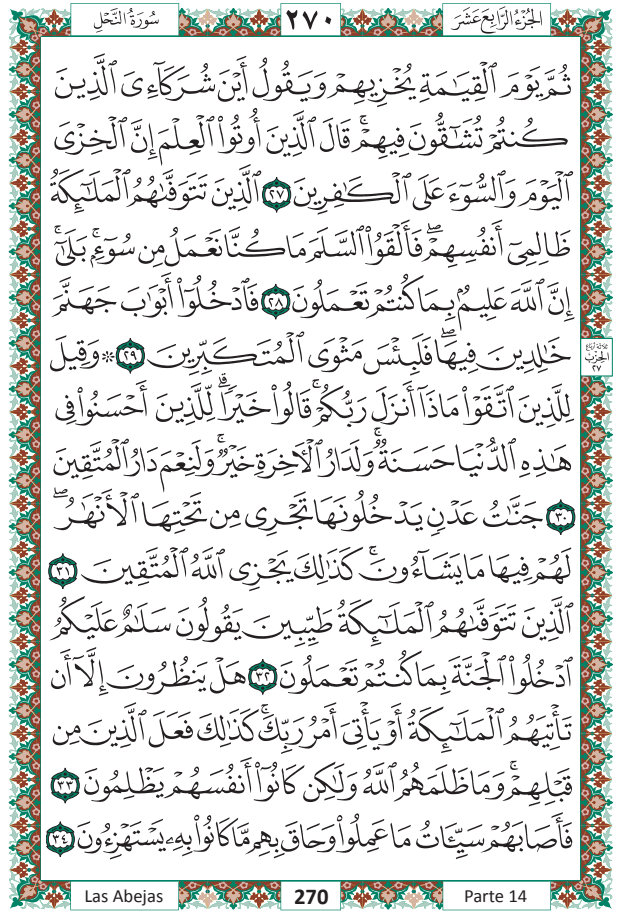 الجُزْءُ الرَّابِعَ عَشَرَ ٢٧٠ سُورَةُ النَّحْلِ
ثُمَّ يَوْمَ ٱلْقِيَٰمَةِ يُخْزِيهِمْ وَيَقُولُ أَيْنَ شُرَكَآءِىَ ٱلَّذِينَ
كُنتُمْ تُشَٰٓقُّونَ فِيهِمْ ۚ قَالَ ٱلَّذِينَ أُوتُوا۟ ٱلْعِلْمَ إِنَّ ٱلْخِزْىَ
ٱلْيَوْمَ وَٱلسُّوٓءَ عَلَى ٱلْكَٰفِرِينَ ٢٧ ٱلَّذِينَ تَتَوَفَّىٰهُمُ ٱلْمَلَٰٓئِكَةُ
ظَالِمِىٓ أَنفُسِهِمْ ۖ فَأَلْقَوُا۟ ٱلسَّلَمَ مَا كُنَّا نَعْمَلُ مِن سُوٓءٍۭ ۚ بَلَىٰٓ ۚ
إِنَّ ٱللَّهَ عَلِيمٌۢ بِمَا كُنتُمْ تَعْمَلُونَ ٢٨ فَٱدْخُلُوٓا۟ أَبْوَٰبَ جَهَنَّمَ
خَٰلِدِينَ فِيهَا ۖ فَلَبِئْسَ مَثْوَى ٱلْمُتَكَبِّرِينَ ٢٩ ۞ وَقِيلَ
ثلاثة أرباع
الحزب
٢٧
لِلَّذِينَ ٱتَّقَوْا۟ مَاذَآ أَنزَلَ رَبُّكُمْ ۚ قَالُوا۟ خَيْرًا ۗ لِّلَّذِينَ أَحْسَنُوا۟ فِى
هَٰذِهِ ٱلدُّنْيَا حَسَنَةٌ ۚ وَلَدَارُ ٱلْءَاخِرَةِ خَيْرٌ ۚ وَلَنِعْمَ دَارُ ٱلْمُتَّقِينَ
٣٠ جَنَّٰتُ عَدْنٍ يَدْخُلُونَهَا تَجْرِى مِن تَحْتِهَا ٱلْأَنْهَٰرُ ۖ
لَهُمْ فِيهَا مَا يَشَآءُونَ ۚ كَذَٰلِكَ يَجْزِى ٱللَّهُ ٱلْمُتَّقِينَ ٣١
ٱلَّذِينَ تَتَوَفَّىٰهُمُ ٱلْمَلَٰٓئِكَةُ طَيِّبِينَ ۙ يَقُولُونَ سَلَٰمٌ عَلَيْكُمُ
ٱدْخُلُوا۟ ٱلْجَنَّةَ بِمَا كُنتُمْ تَعْمَلُونَ ٣٢ هَلْ يَنظُرُونَ إِلَّآ أَن
تَأْتِيَهُمُ ٱلْمَلَٰٓئِكَةُ أَوْ يَأْتِىَ أَمْرُ رَبِّكَ ۚ كَذَٰلِكَ فَعَلَ ٱلَّذِينَ مِن
قَبْلِهِمْ ۚ وَمَا ظَلَمَهُمُ ٱللَّهُ وَلَٰكِن كَانُوٓا۟ أَنفُسَهُمْ يَظْلِمُونَ ٣٣
فَأَصَابَهُمْ سَيِّـَٔاتُ مَا عَمِلُوا۟ وَحَاقَ بِهِم مَّا كَانُوا۟ بِهِۦ يَسْتَهْزِءُونَ ٣٤
Las Abejas 270 Parte 14